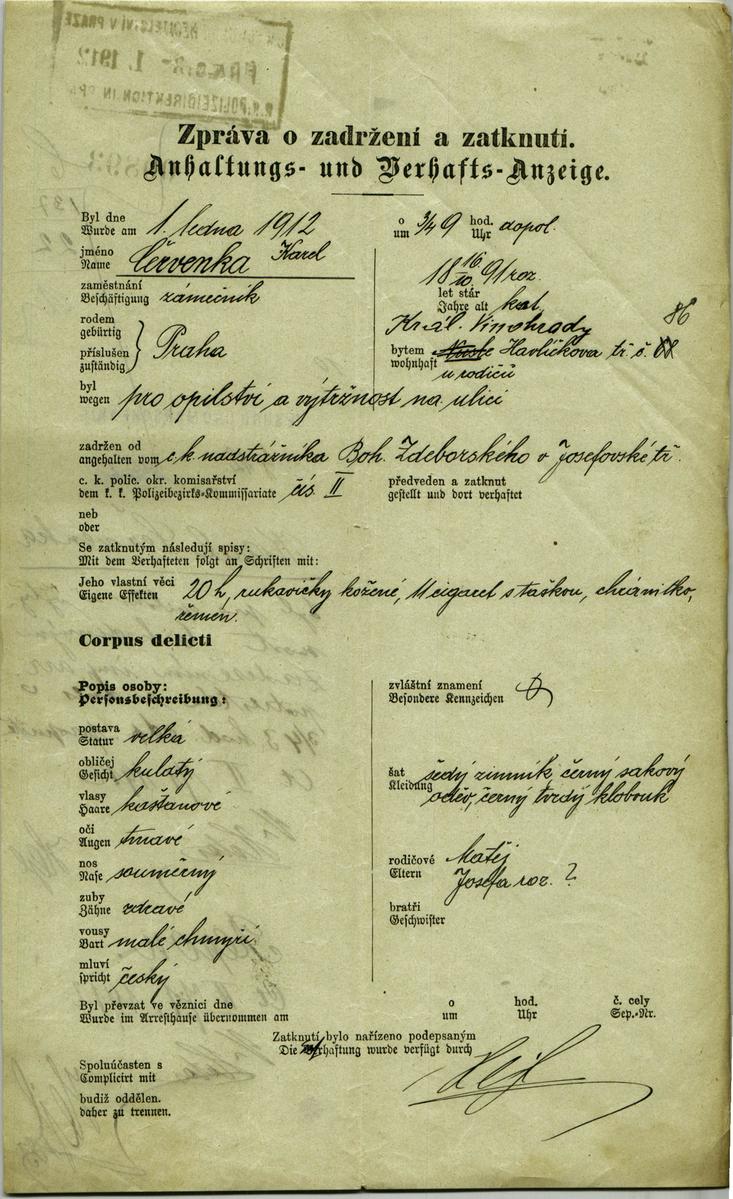 Zpráva o zadržení a zatknutí.
Anhaltungs- und Verhafts-Anzeige.
Byl dne
Wurde am 1. ledna 1912
o
um ¾ 9 hod. dopol.
Uhr
jméno
Name Červenka Karel
18 16/10 91 roz.
zaměstnání
Beschäftigung zámečník
let stár
Jahre alt kat.
rodem
gebürtig
příslušen
zuständig Praha
Král. Vinohrady 86
bytem
wohnhaft Nusle Havlíčkova tř. č. 88
u rodičů
byl
wegen pro opilství a výtržnost na ulici
zadržen od
angehalten vom c. k. nadstrážníka Boh. Zdeborského v Josefovské tř.
c. k. polic. okr. komisařství
dem k. k. Polizeibezirks-Kommissariate čís II
předveden a zatknut
gestellt und dort verhaftet
neb
oder
Se zatknutým následují spisy:
Mit dem Verhafteten folgt an Schriften mit:
Jeho vlastní věci
Eigene Effekten 20 h, rukavičky kožené, 11 cigaret s taškou, chránítko,
řemen.
Corpus delicti
Popis osoby:
Personsbeschreibung:
zvláštní znamení
Besondere Kennzeichen
postava
Statur velká
obličej
Gesicht kulatý
šat
Kleidung šedý zimník, černý sakový
oděv, černý tvrdý klobouk
vlasy
Haare kaštanové
oči
Augen tmavé
nos
Nase souměrný
rodičové
Eltern Matěj
Josefa roz. ?
zuby
Zähne zdravé
bratři
Geschwister
vousy
Bart malé chmýří
mluví
spricht český
Byl převzat ve věznici dne
Wurde im Arresthause übernommen am
o
um
hod.
Uhr
č. cely
Sep.-Nr.
Zatknutí bylo nařízeno podepsaným
Die Verhaftung wurde verfügt durch
Spoluúčasten s
Complicirt mit
budiž oddělen.
daher zu trennen.